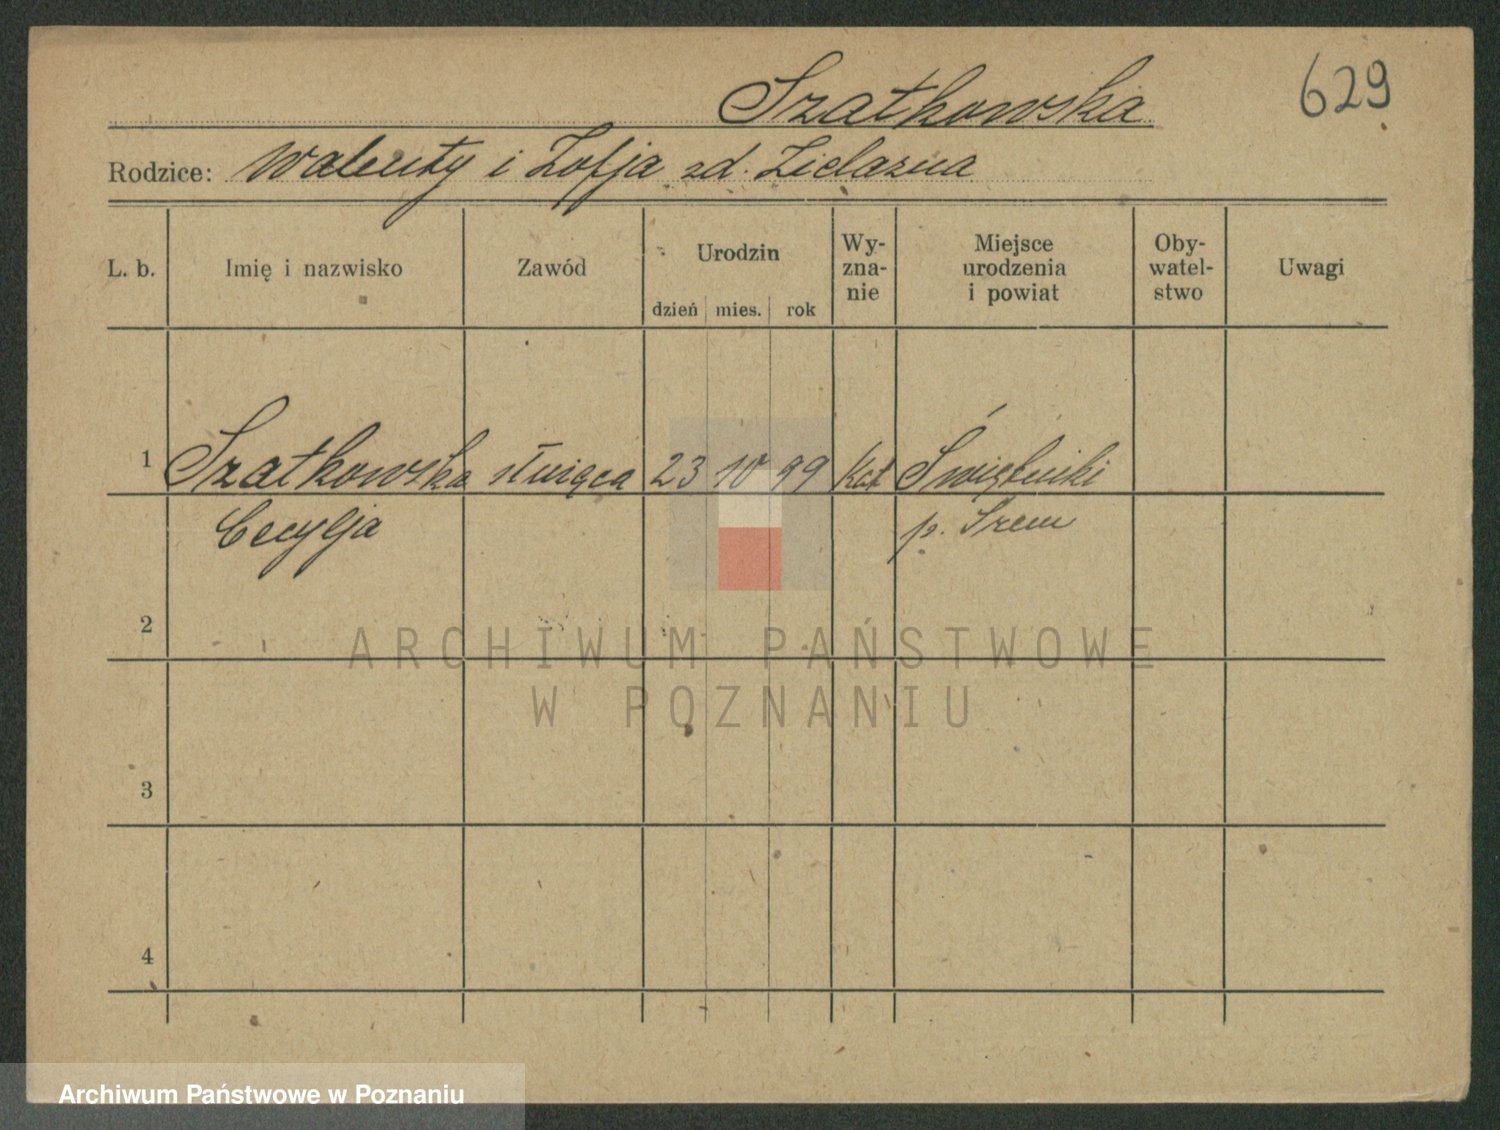 629
Szatkowska
Rodzice: Walenty i Zofja zd. Zielazna
L. b. Imię i nazwisko Zawód Urodzin Wy-zna-nie Miejsce urodzenia i powiat Oby-watel-stwo Uwagi
dzień mies. rok
1 Szatkowska służąca 23 10 99 kat Świętniki
Cecylja p. Śrem
2
3
4
ARCHIWUM PAŃSTWOWE
W POZNANIU
Archiwum Państwowe w Poznaniu